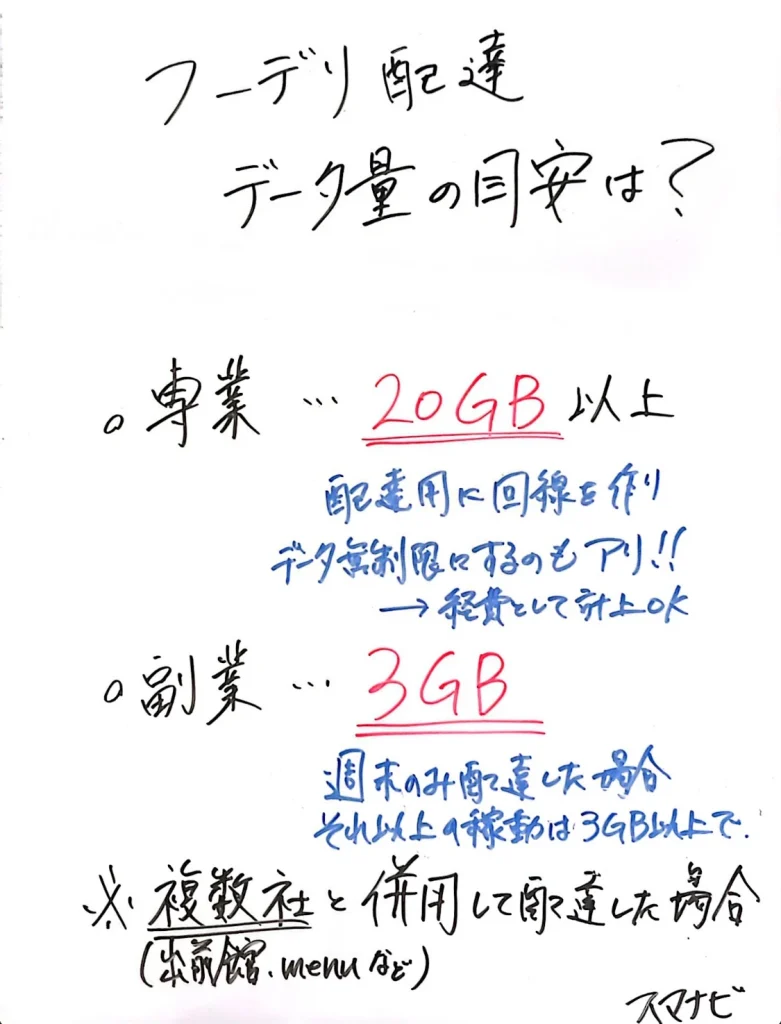 フーデリ配達
データ量の目安は?
。専業 … 20GB 以上
配達用に回線を作り
データ無制限にするのもアリ!!
→ 経費として計上OK
。副業 … 3GB
週末のみ配達した場合
それ以上の稼動は3GB以上で.
※複数社と併用して配達した場合
(出前館.menuなど)
スマナビ